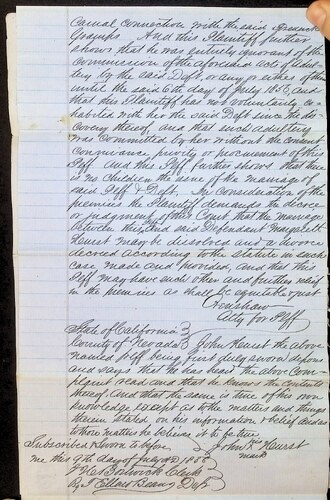 carnal connection with the said Frederick
Gramps. And this Plaintiff further
shows that he was entirely ignorant of the
commission of the aforesaid acts of adul-
-tery by the said Deft. or any or either of them
until the said 6th day of July 1856, and
that this Plaintiff has not voluntarily co-
habited with her the said Deft since the dis-
covery thereof, and that such adultery
was committed by her without the consent
connivance, privity or procurement of this
Plff. And this Plff further shows that there
is no children the issue of the marriage of
said Plff & Deft. In consideration of the
premises the Plaintiff demands the decree
or judgment of this Court that the marriage
between this and said Defendant Margarett
Hurst may be dissolved and a divorce
decreed according to the statute in such
case made and provided, and that this
Plff may have such other and further relief
in the premises as shall be equitable & just
Atty for Plff
State of California
County of Nevada } John Hurst the above
named Plff being first duly sworn deposes
and says that he has heard the above Com-
plaint read and that he knows the contents
thereof. And that the same is true of his own
knowledge except as to the matters and things
therein stated on his information & belief and as
to those matters he believes it to be true.
Subscribed & sworn to before John his X Hurst
me this 9th day of July AD 1856 mark
Bostwick Clerk
By Dept